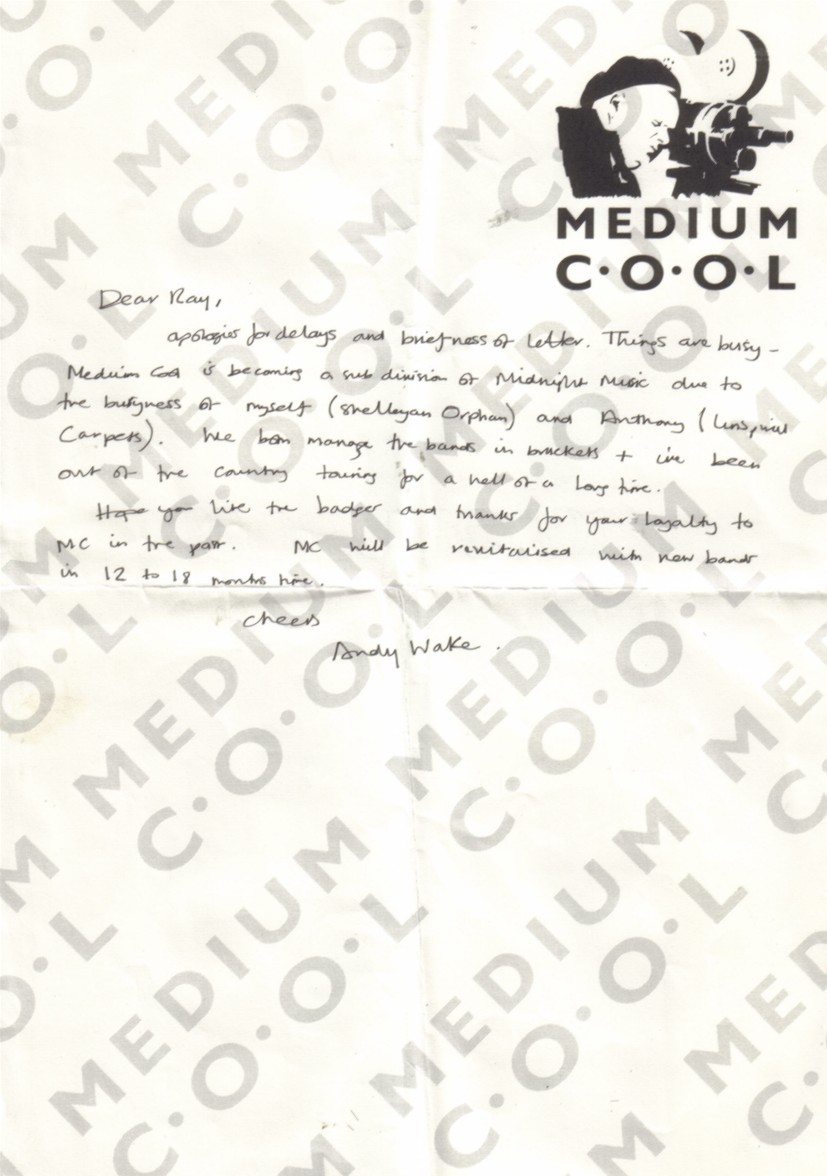 MEDIUM
C·O·O·L
Dear Ray,
apologies for delays and briefness of letter. Things are busy -
Medium Cool is becoming a sub division of Midnight Music due to
the busyness of myself (Shelleyan Orphan) and Anthony (Inspiral
Carpets). We both manage the bands in brackets + i've been
out of the country touring for a hell of a long time.
Hope you like the badges and thanks for your loyalty to
MC in the past. MC will be revitalised with new bands
in 12 to 18 months time.
Cheers
Andy Wake.